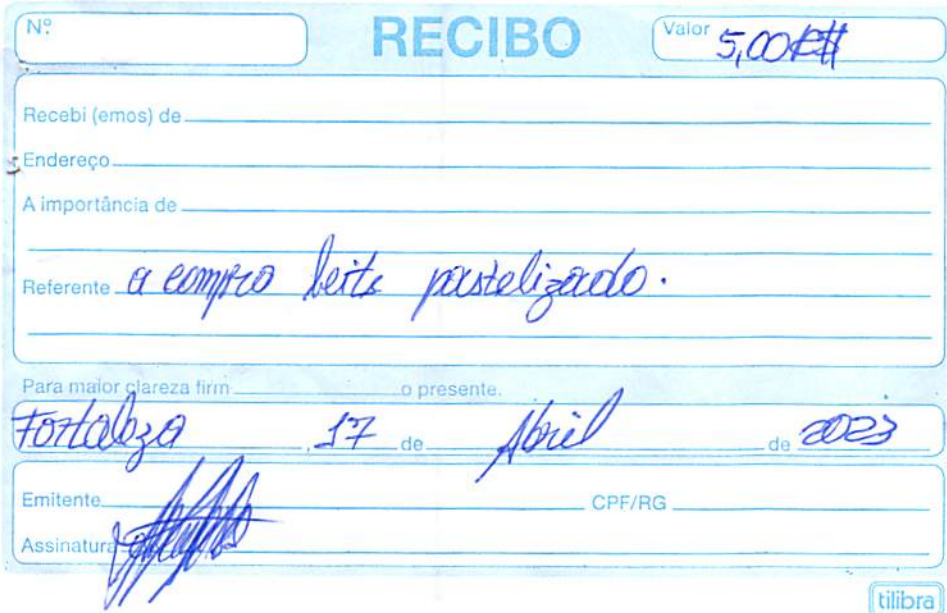 Nº RECIBO Valor 5,00
Recebi (emos) de
Endereço
A importância de
Referente a compra leite pastelizado.
Para maior clareza firm o presente.
Fortaleza, 17 de Abril de 2023
Emitente CPF/RG
Assinatura
tilibra